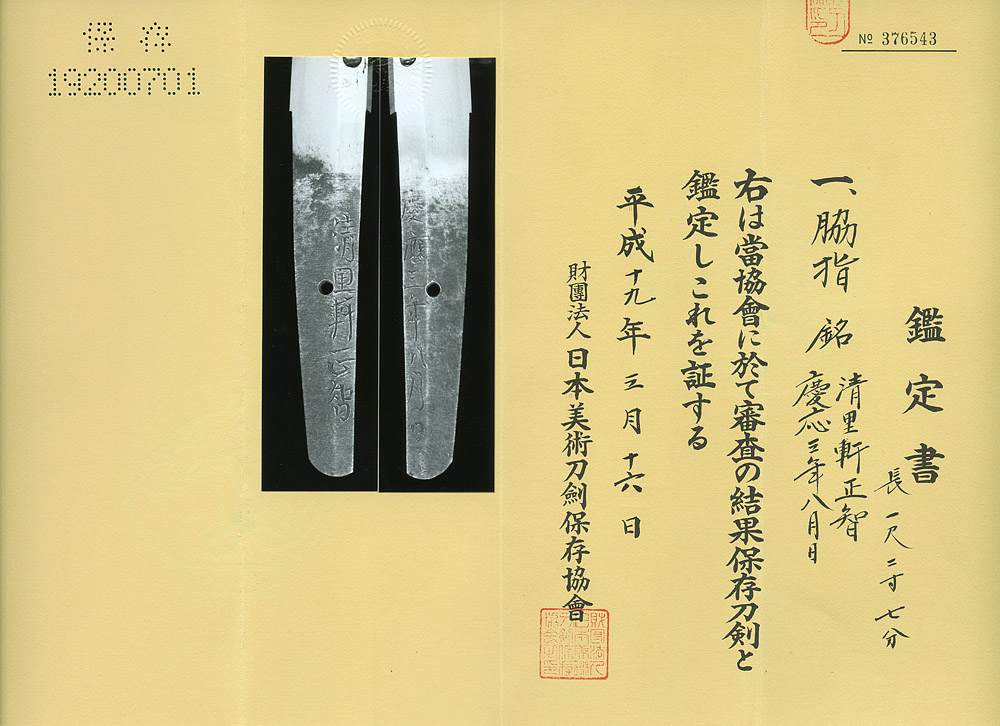 保存
19200701
№ 376543
鑑定書
長 一尺二寸七分
一、脇指 銘 清里軒正智
慶応三年八月日
右は當協會に於て審査の結果保存刀剣と
鑑定しこれを証する
平成十九年三月十六日
財團法人日本美術刀劍保存協會
慶應三年八月日
清里軒正智